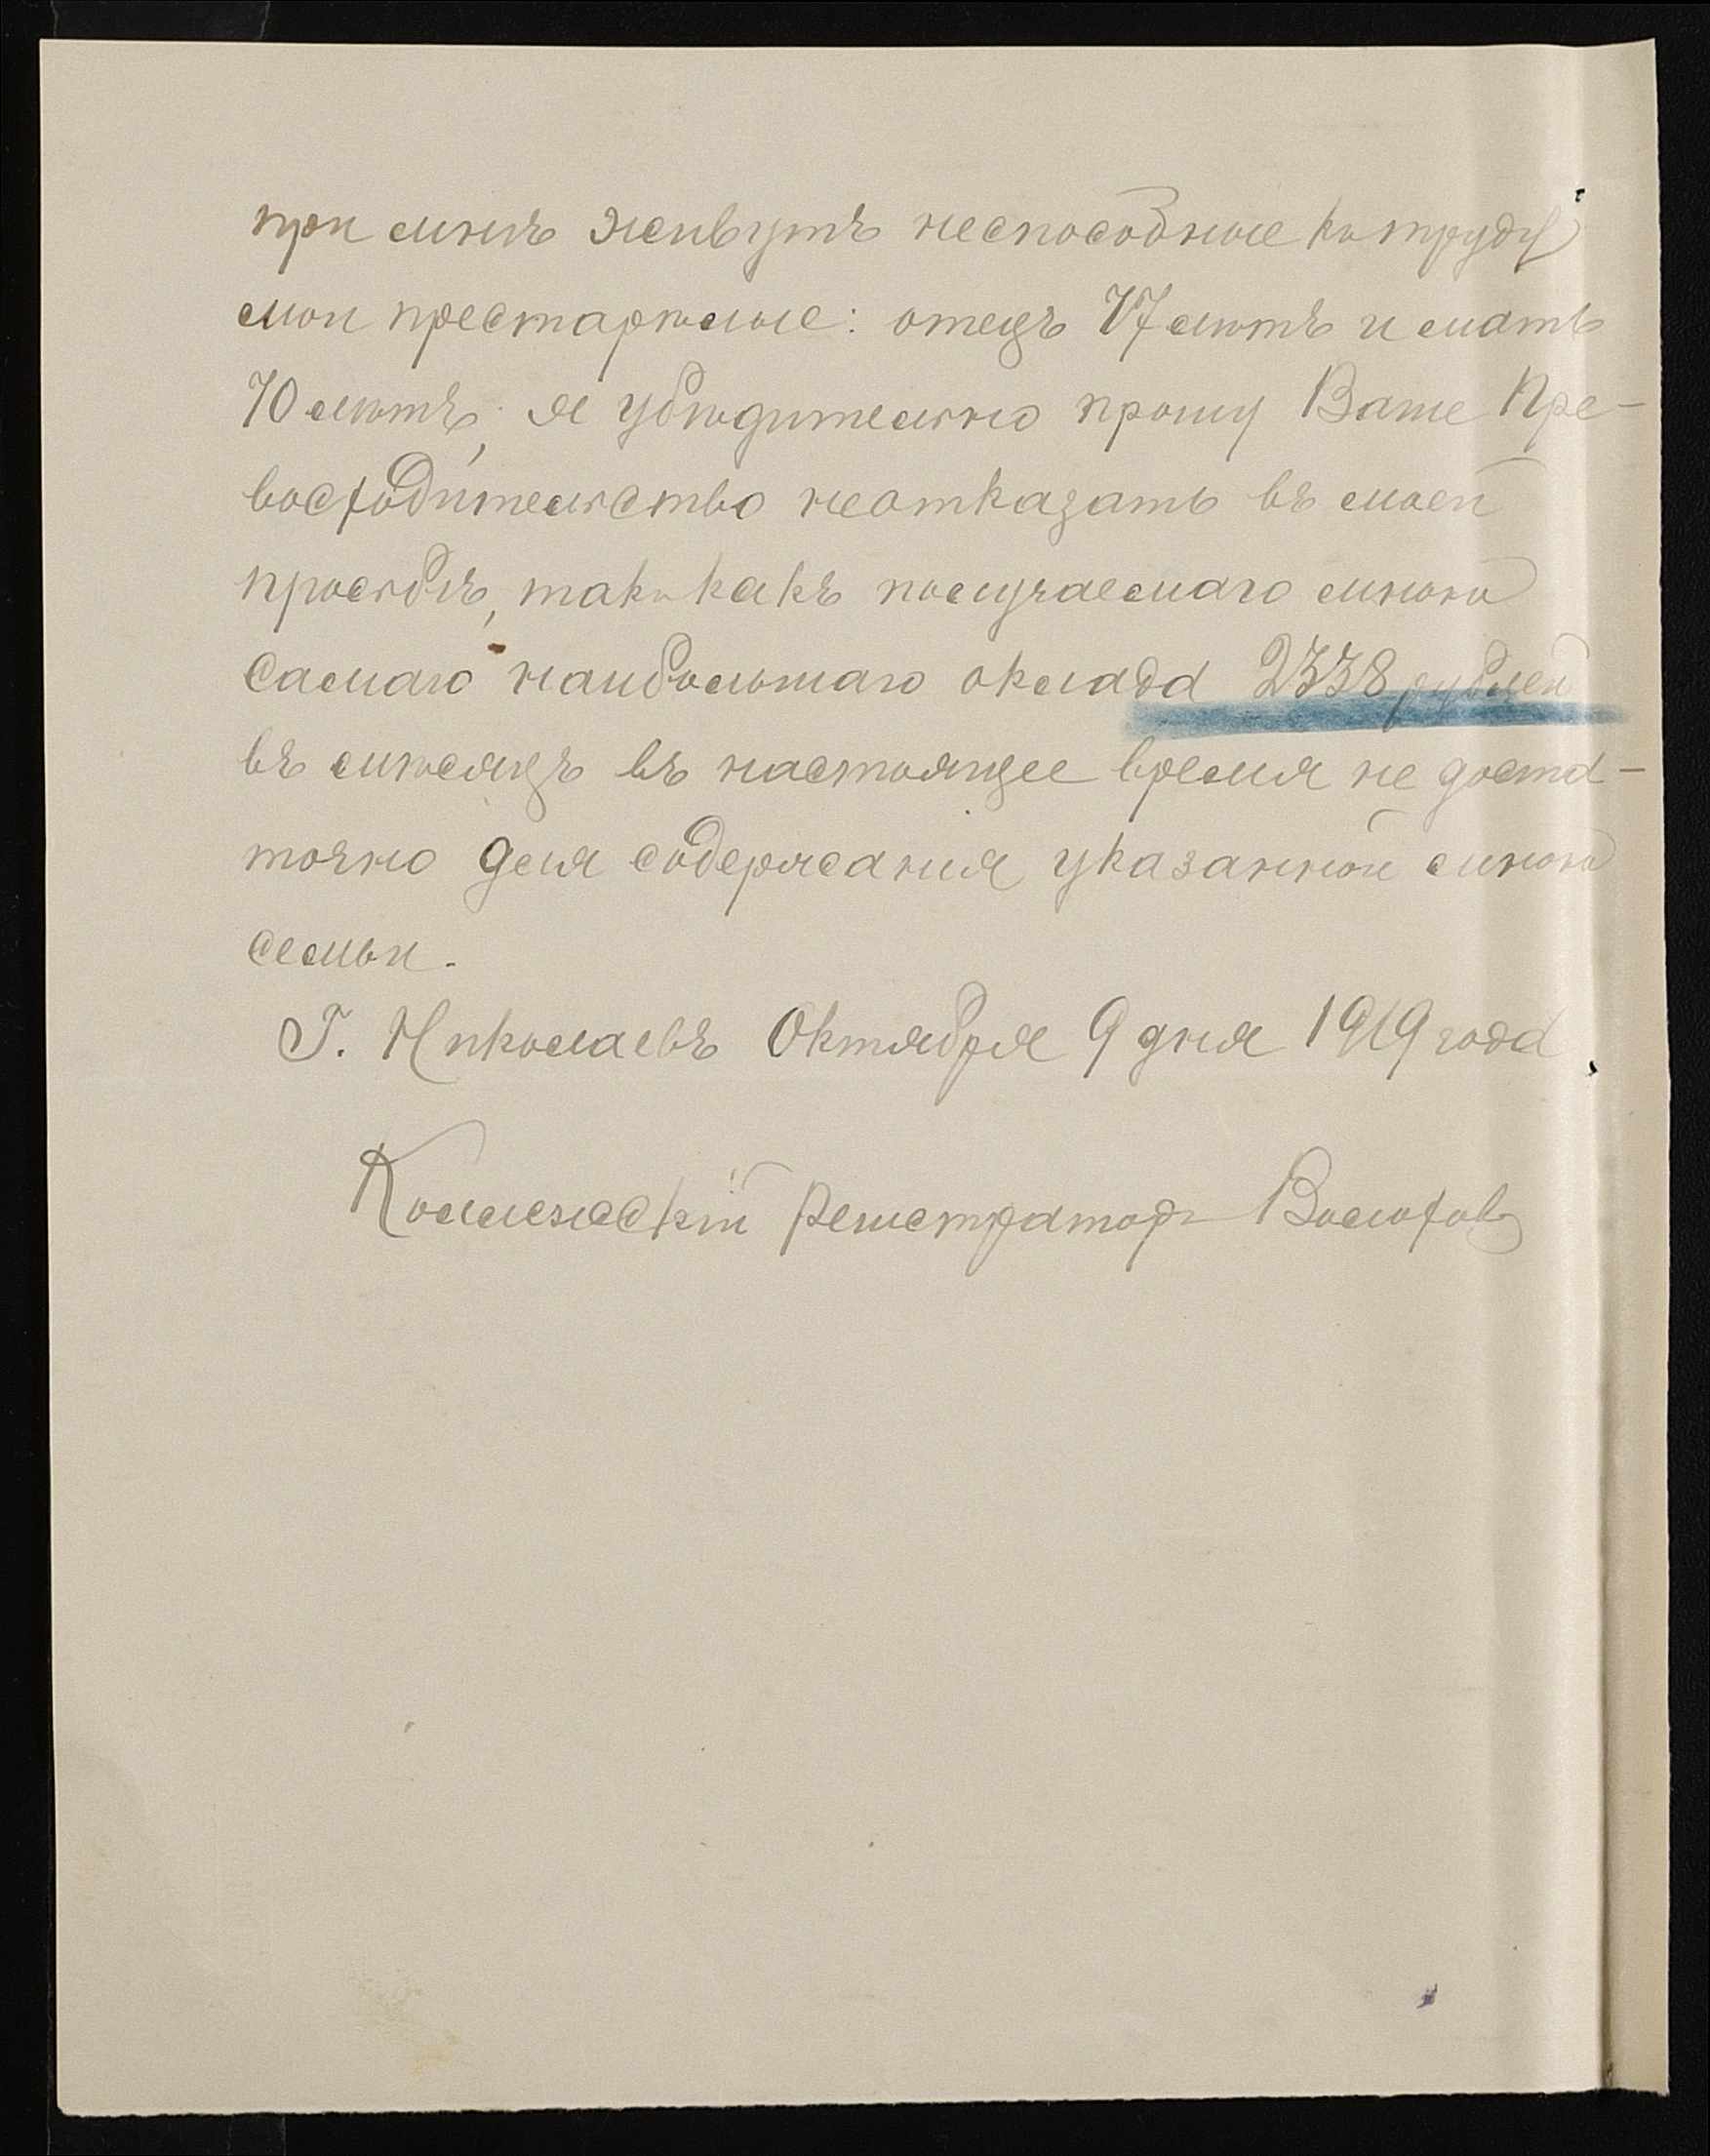 при мнѣ живутъ неспособные къ труду
мои престарѣлые: отецъ 77 лѣтъ и мать
70 лѣтъ, я убѣдительно прошу Ваше Пре-
восходительство неотказать въ моей
просьбѣ, такъ какъ получаемаго мною
самаго наибольшаго оклада 2338 рублей
въ мѣсяцъ въ настоящее время не доста-
точно для содержания указанной мною
семьи.
Г. Николаевъ Октября 9 дня 1919 года
Коллежскій Регистраторъ